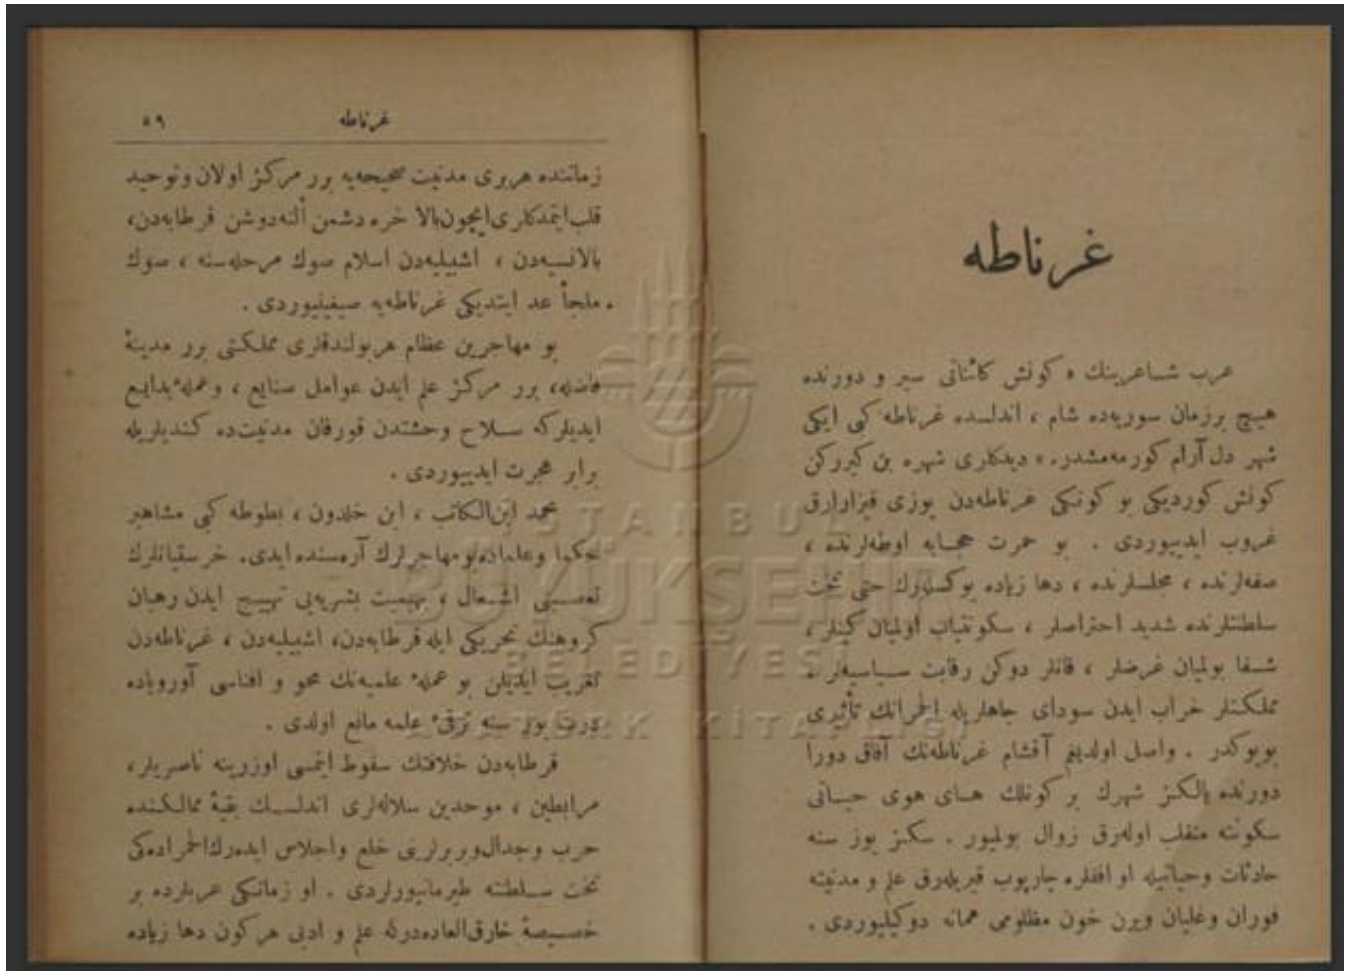 غرناطه
عرب شاعرينك « كونش كائناتى سير و دورنده
هيچ برزمان سوريه‌ده شام ، اندلسده غرناطه كبى ايكى
شهر دل آرام كورمه‌مشدر. » ديدكلرى شهره بن كيركن
كونش كورديكى بو كونكى غرناطه‌دن يوزى قيزارارق
غروب ايدييوردى . بو حمرت حجابه اوطه‌لرنده ،
صفه‌لرنده ، مجلسلرنده ، دها زياده يوكسله‌رك حتى تخت
سلطنتلرنده شديد احتراصلر ، سكونتياب اولميان كينلر ،
شفا بولميان غرضلر ، قانلر دوكن رقابت سياسيه‌لر ،
مملكتلر خراب ايدن سوداى جاهلريله الحمرانك تأثيرى
بويوكدر . واصل اولديغم آقشام غرناطه‌نك آفاق دورا
دورنده يالكز شهرك بر كونلك هاى هوى حياتى
سكونته منقلب اوله‌رق زوال بولميور . سكز يوز سنه
حادثات وحياتيله او افقلره چارپوب قيريله‌رق علم و مدنيته
فوران وغليان ويرن خون مظلومى عمانه دوكيليوردى .
غرناطه ٥٩
زماننده هربرى مدنيت صحيحه‌يه برر مركز اولان وتوحيد
قلب ايتمدكلرى ايچون بالا خره دشمن ألنه دوشن قرطابه‌دن،
بالانسيه‌دن ، اشبيليه‌دن اسلام صوك مرحله‌سنه ، صوك
ملجأ عد ايتديكى غرناطه‌يه صيغينيوردى .
بو مهاجرين عظام هربولندقلرى مملكتى برر مدينهٔ
فاضله، برر مركز علم ايدن عوامل صنايع ، وعملهٔ بدايع
ايديلركه سلاح وحشتدن قورقان مدنيت‌ده كنديلريله
برابر هجرت ايدييوردى .
محمد ابن‌الكاتب ، ابن خلدون ، بطوطه كبى مشاهير
حكما وعلماده بو مهاجرلرك آره‌سنده ايدى. خرستيانلرك
تعصبنى اشعال ، بهيميت بشريه‌يى تهييج ايدن رهبان
كروهنك تحريكى ايله قرطابه‌دن، اشبيليه‌دن ، غرناطه‌دن
تغريب ايديلن بو عملهٔ علميه‌نك محو و افناسى آوروپاده
درت يوز سنه ترقئ علمه مانع اولدى .
قرطابه‌دن خلافتك سقوط ايتمسى اوزرينه ناصريلر،
مرابطين ، موحدين سلاله‌لرى اندلسك بقيهٔ ممالكنده
حرب وجدال وبربرلرينى خلع واجلاس ايده‌رك الحمراده‌كى
تخت سلطنته طيرمانيورلردى . او زمانكى عربلرده بر
خصيصهٔ خارق‌العاده درلكه علم و ادبى هر كون دها زياده